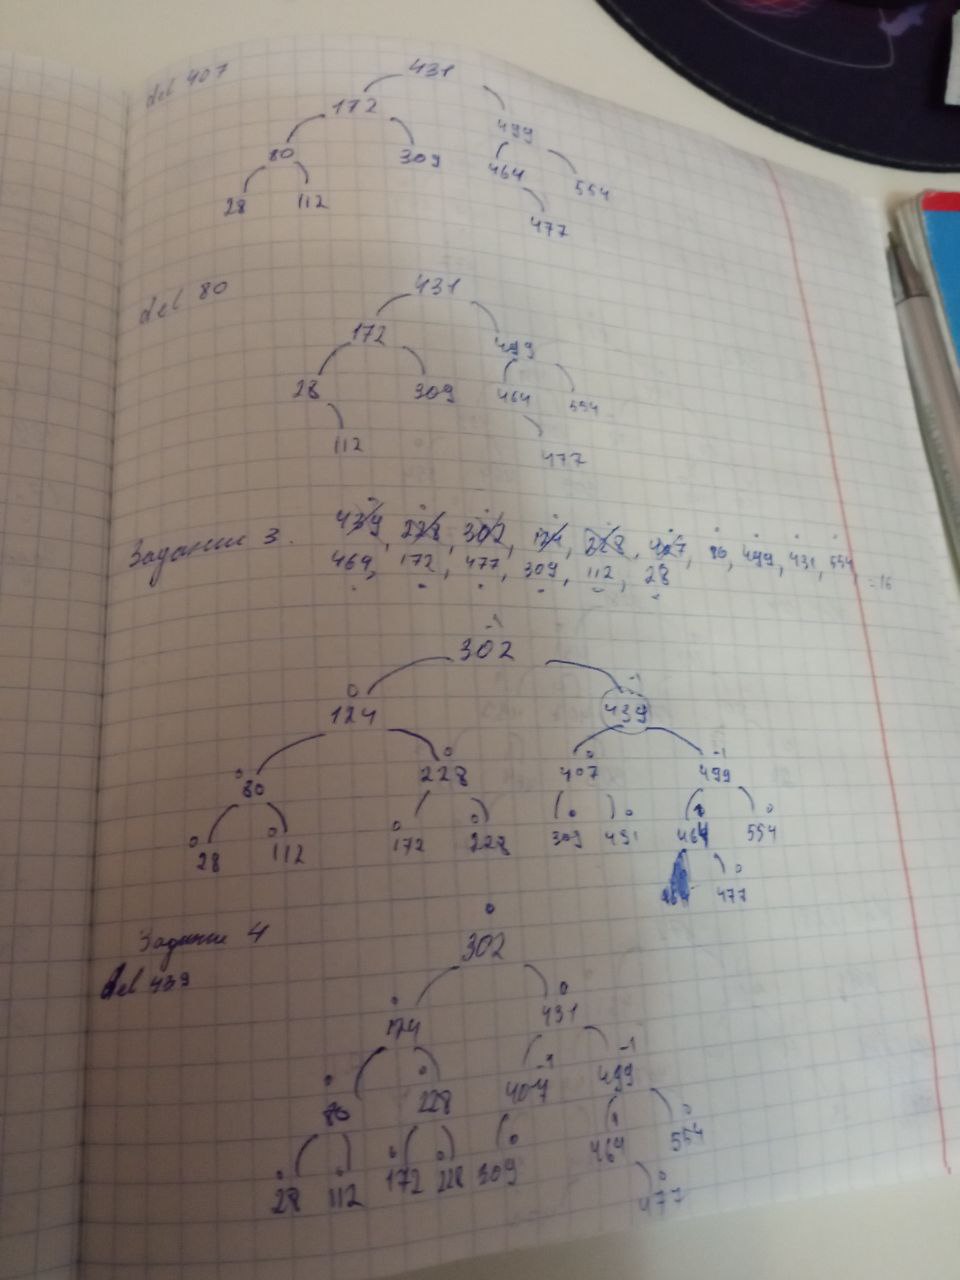 del 407
431
172
499
80 309 464 554
28 112
477
del 80
431
172
499
28 309 464 554
112 477
Задание 3. 439, 228, 302, 124, 228, 407, 80, 499, 431, 554,
469, 172, 477, 309, 112, 28 =16
-1
302
0 -1
124 439
0 0 0 -1
80 228 407 499
0 0 0 0 0 0 0
28 112 172 228 309 431 464 554
0
477
Задание 4
0
302
del 439
0 0
124 431
0 0 -1 -1
80 228 407 499
0 0 0 0 0 0
28 112 172 228 309 464 554
0
477